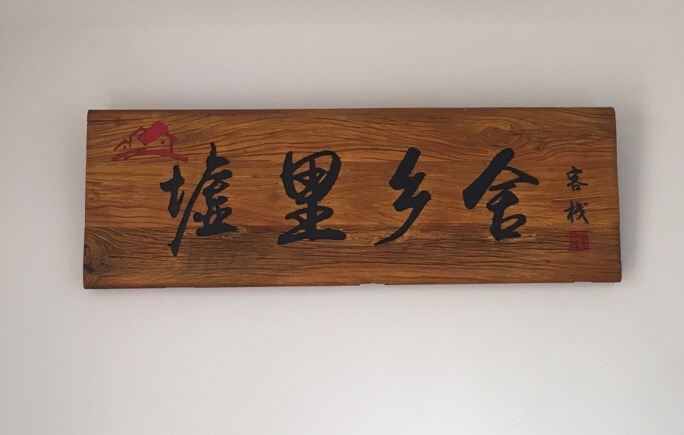 墟里乡舍
客栈